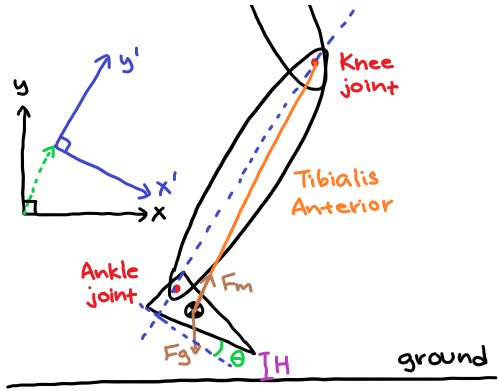 y'
Knee
joint
y
x'
x
Tibialis
Anterior
Ankle
joint
Fm
Fg
θ
H
ground